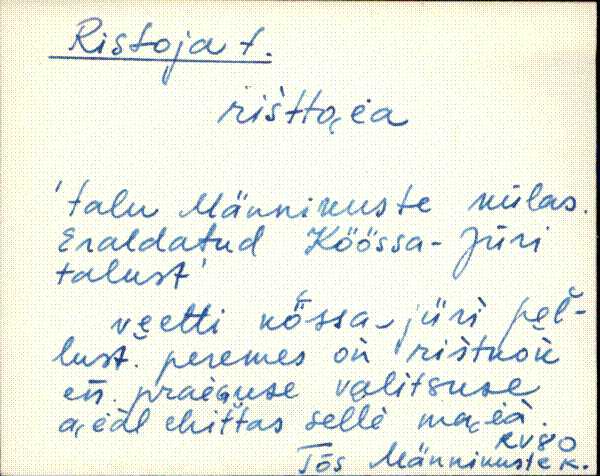 Ristoja t.
rištto̬ėa
'talu Männikuste külas.
Eraldatud Köössa-Jüri
talust'
veetti kȫssa-jüri pel̆-
lust. peremes oń ristnoń
eń. praėguse valitsuse
a̬ėal ehittas sellė ma̬ėa.
RV80
Tõs Männikuste k.